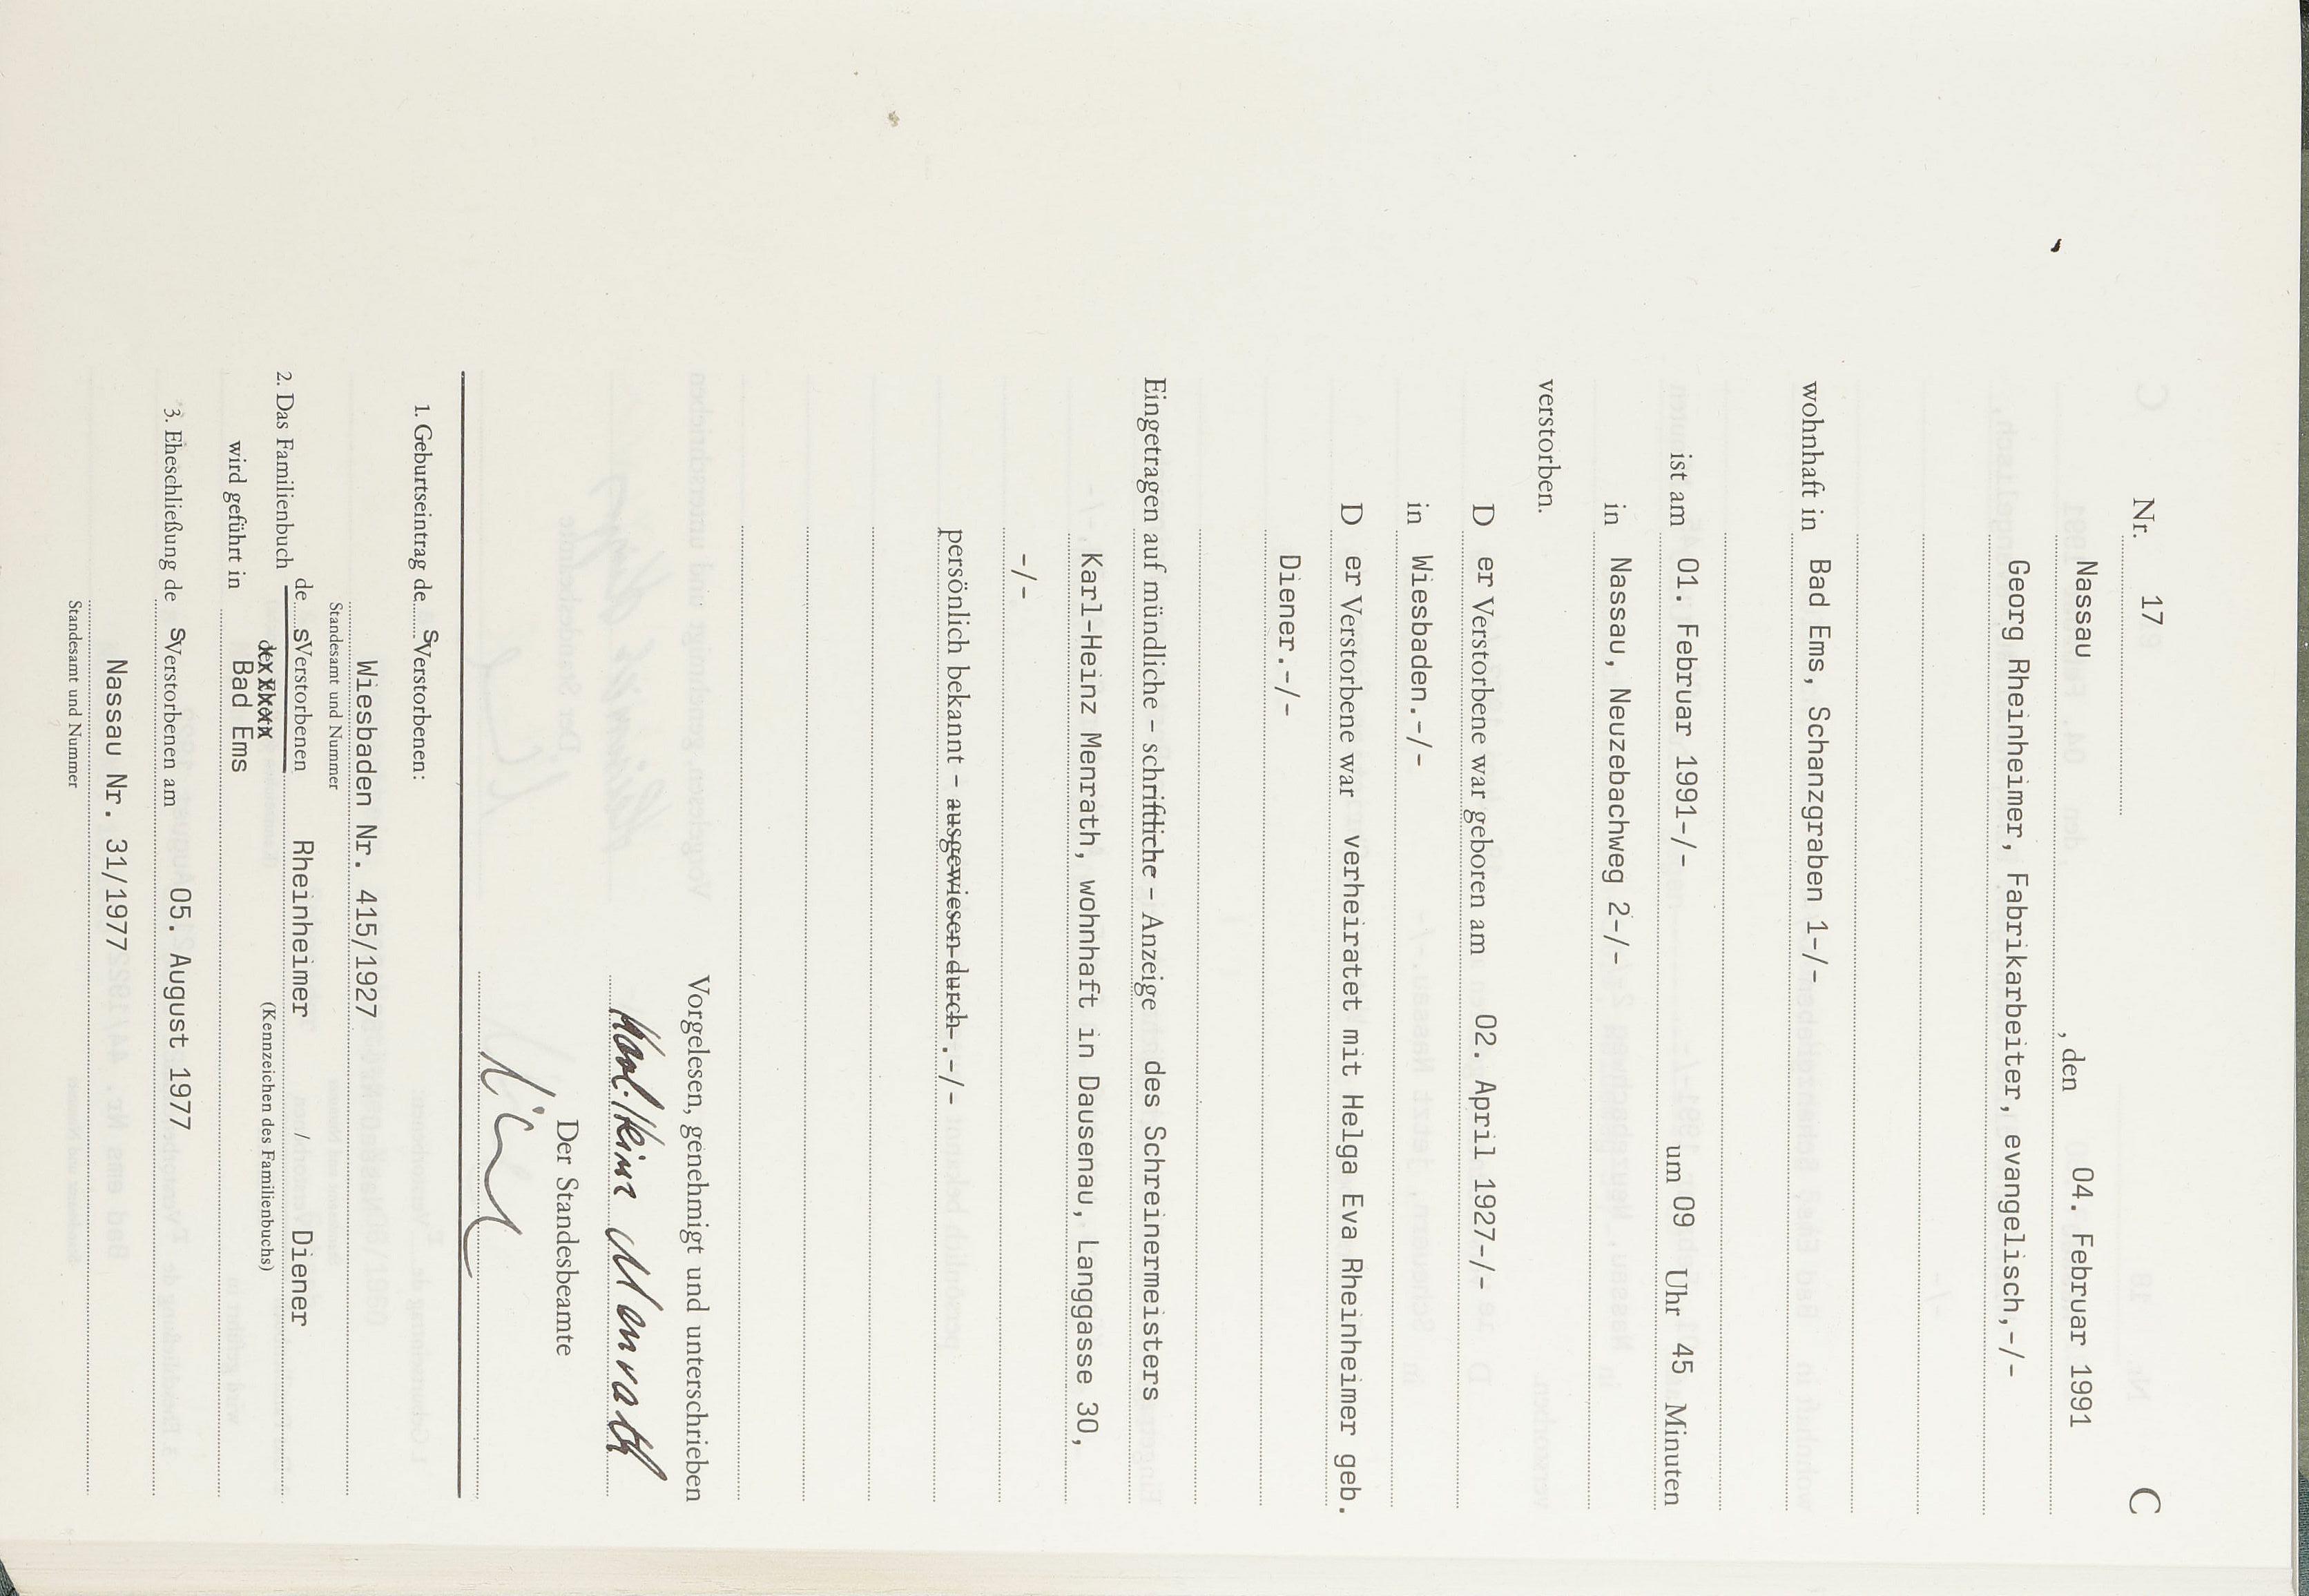 Nr. 17 C
Nassau , den 04. Februar 1991
Georg Rheinheimer, Fabrikarbeiter, evangelisch,-/-
wohnhaft in Bad Ems, Schanzgraben 1-/-
ist am 01. Februar 1991-/- um 09 Uhr 45 Minuten
in Nassau, Neuzebachweg 2-/-
verstorben.
D er Verstorbene war geboren am 02. April 1927-/-
in Wiesbaden.-/-
D er Verstorbene war verheiratet mit Helga Eva Rheinheimer geb.
Diener.-/-
Eingetragen auf mündliche - schriftliche - Anzeige des Schreinermeisters
Karl-Heinz Menrath, wohnhaft in Dausenau, Langgasse 30,
-/-
persönlich bekannt - ausgewiesen durch-.-/-
Vorgelesen, genehmigt und unterschrieben
Karl-Heinz Menrath
Der Standesbeamte
1. Geburtseintrag des Verstorbenen:
Wiesbaden Nr. 415/1927
Standesamt und Nummer
2. Das Familienbuch des Verstorbenen Rheinheimer / Diener
(Kennzeichen des Familienbuchs)
wird geführt in Bad Ems
3. Eheschließung des Verstorbenen am 05. August 1977
Nassau Nr. 31/1977
Standesamt und Nummer